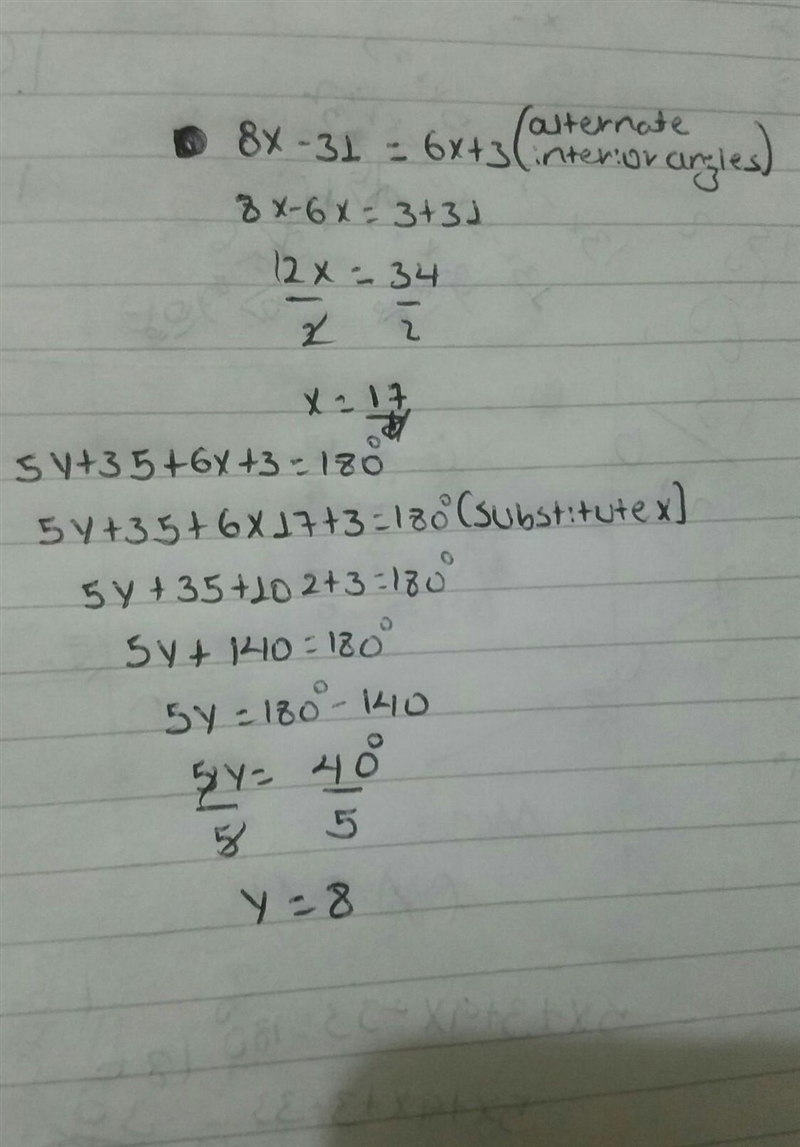 8x - 31 = 6x+3 (alternate
interior angles)
8x-6x = 3+31
12x = 34
2 2
x = 17
5y+35+6x+3=180°
5y+35+6x17+3=180° (substitute x]
5y+35+102+3=180°
5y+140=180°
5y=180°-140
5y= 40°
5 5
y = 8